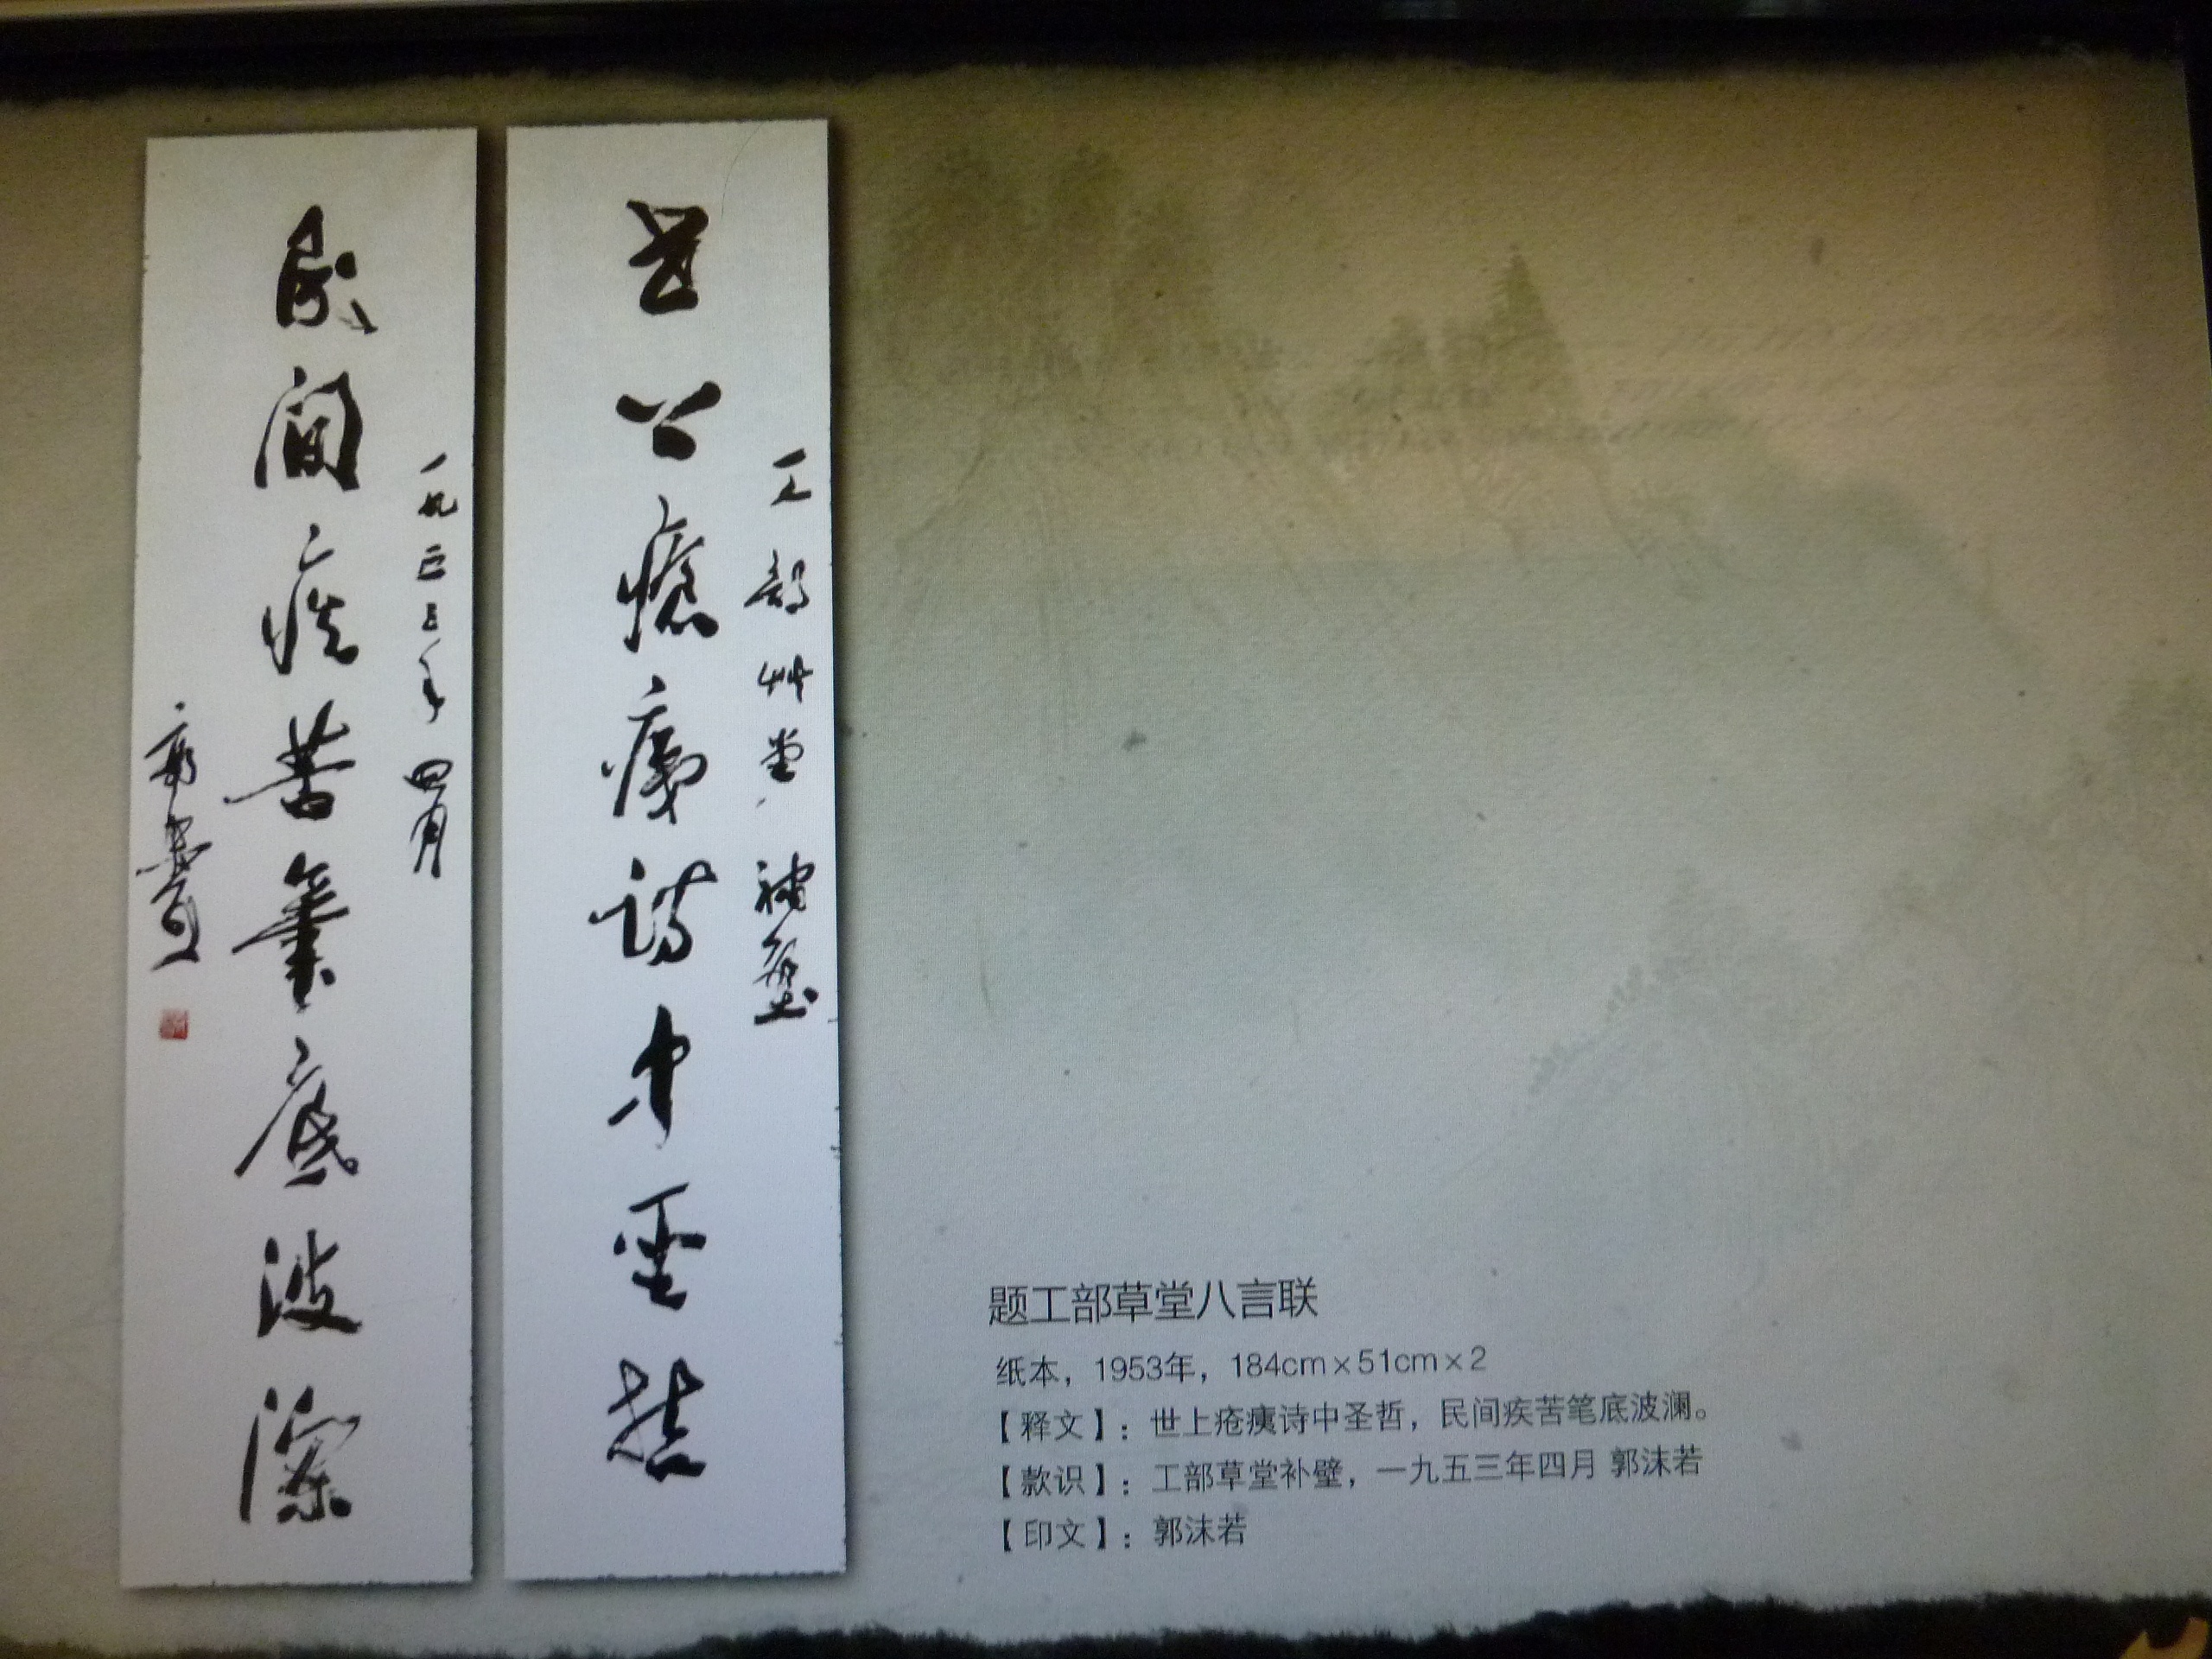 工部艸堂補壁
世上瘡痍詩中聖哲
一九五三年四月
民間疾苦筆底波瀾
郭沫若
题工部草堂八言联
纸本，1953年，184cm×51cm×2
【释文】：世上疮痍诗中圣哲，民间疾苦笔底波澜。
【款识】：工部草堂补壁，一九五三年四月 郭沫若
【印文】：郭沫若